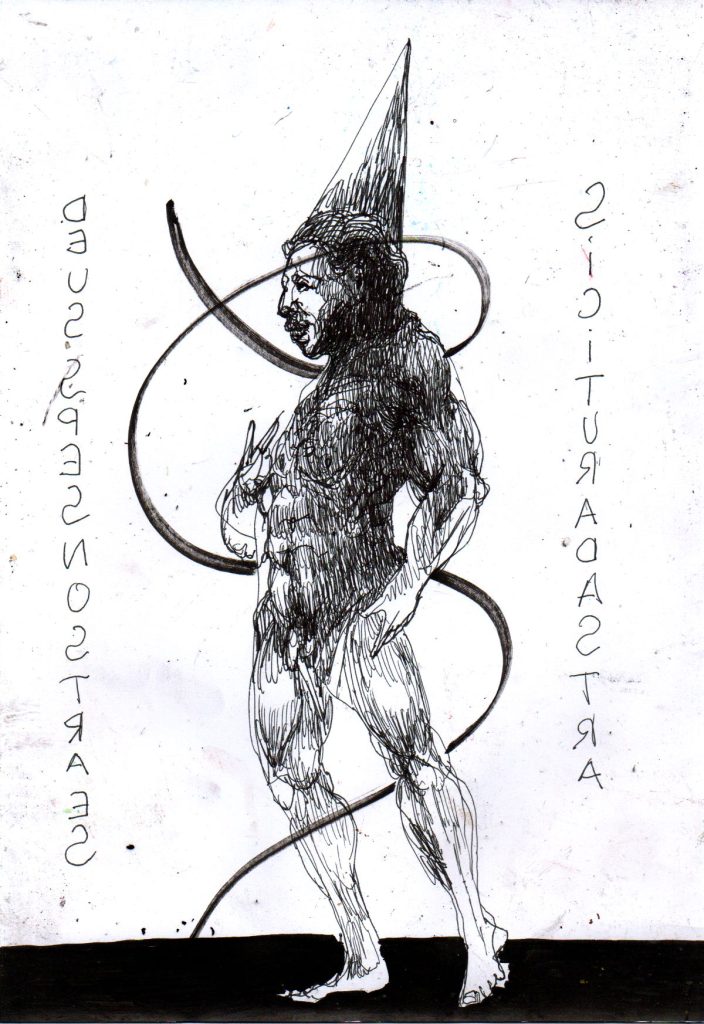 DEUSSPESNOSTRAES
SiCiTURADASTRA